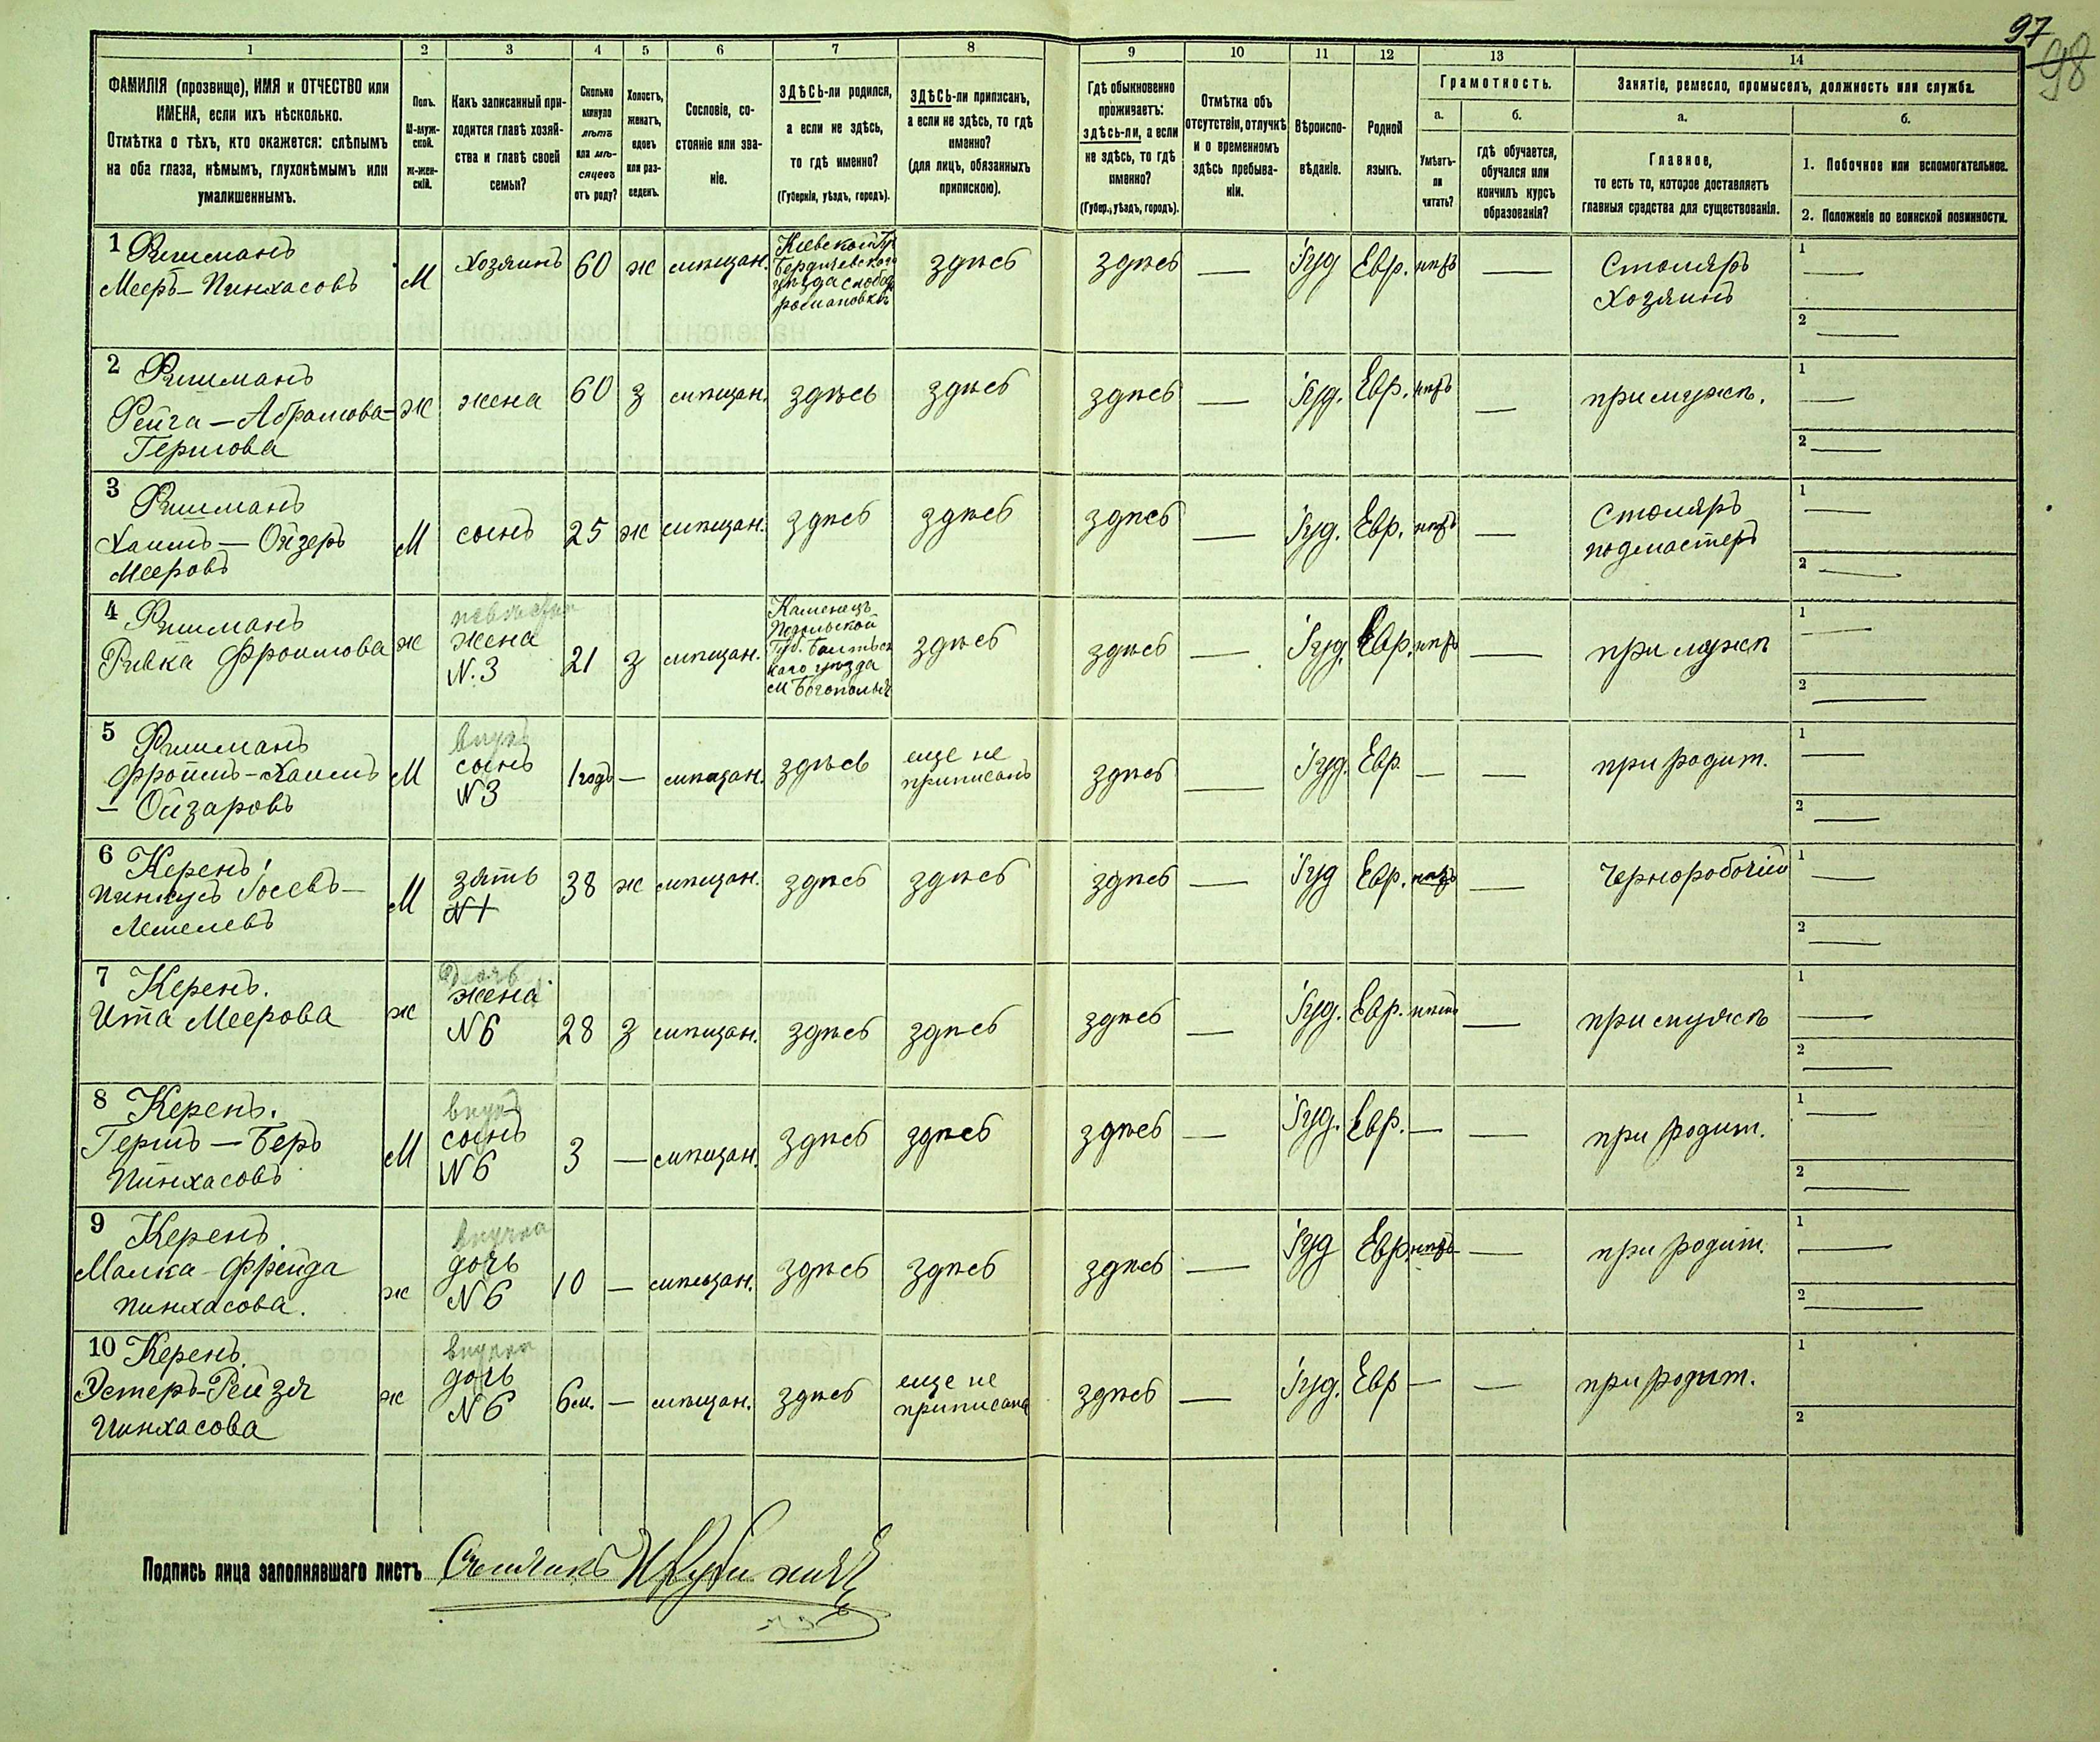 97
98
1 2 3 4 5 6 7 8 9 10 11 12 13 14
ФАМИЛІЯ (прозвище), ИМЯ и ОТЧЕСТВО или
ИМЕНА, если ихъ нѣсколько.
Отмѣтка о тѣхъ, кто окажется: слѣпымъ
на оба глаза, нѣмымъ, глухонѣмымъ или
умалишеннымъ.
Полъ.
М-муж-
ской.
ж-жен-
скій.
Какъ записанный при-
ходится главѣ хозяй-
ства и главѣ своей
семьи?
Сколько
минуло
лѣтъ
или мѣ-
сяцевъ
отъ роду?
Холостъ,
женатъ,
вдовъ
или раз-
веденъ.
Сословіе, со-
стояніе или зва-
ніе.
ЗДѢСЬ-ли родился,
а если не здѣсь,
то гдѣ именно?
(Губернія, уѣздъ, городъ).
ЗДѢСЬ-ли приписанъ,
а если не здѣсь, то гдѣ
именно?
(для лицъ, обязанныхъ
припискою).
Гдѣ обыкновенно
проживаетъ:
здѣсь-ли, а если
не здѣсь, то гдѣ
именно?
(Губер., уѣздъ, городъ).
Отмѣтка объ
отсутствіи, отлучкѣ
и о временномъ
здѣсь пребыва-
ніи.
Вѣроиспо-
вѣданіе.
Родной
языкъ.
Грамотность.
а.
Умѣетъ-
ли
читать?
б.
гдѣ обучается,
обучался или
кончилъ курсъ
образованія?
Занятіе, ремесло, промыселъ, должность или служба.
а.
Главное,
то есть то, которое доставляетъ
главныя средства для существованія.
б.
1. Побочное или вспомогательное.
2. Положеніе по воинской повинности.
1 Фишманъ
Мееръ-Пинхасовъ
М
Хозяинъ
60
ж
мѣщан.
Кіевской Гу
Бердичевскаго
уѣзда слобод
романовкѣ
здѣсь
здѣсь
—
Іуд
Евр.
нѣтъ
—
Столяръ
Хозяинъ
1 —
2 —
2 Фишманъ
Рейга-Абрамова-
Гершова
ж
жена
60
з
мѣщан.
здѣсь
здѣсь
здѣсь
—
Іуд.
Евр.
нѣтъ
—
при мужѣ.
1 —
2 —
3 Фишманъ
Хаимъ-Ойзеръ
Мееровъ
М
сынъ
25
ж
мѣщан.
здѣсь
здѣсь
здѣсь
—
Іуд.
Евр.
нѣтъ
—
Столяръ
подмастеръ
1 —
2 —
4 Фишманъ
Ривка Фроимова
ж
невѣстка
жена
N.3
21
з
мѣщан.
Каменецъ
Подольской
Губ. Балтьск
каго уѣзда
м Богополья
здѣсь
здѣсь
—
Іуд.
Евр.
нѣтъ
—
при мужѣ
1 —
2 —
5 Фишманъ
Фроимъ-Хаимъ
- Ойзаровъ
М
внукъ
сынъ
N3
1 годъ
—
мѣщан.
здѣсь
еще не
приписанъ
здѣсь
—
Іуд.
Евр
—
—
при родит.
1 —
2 —
6 Керенъ
Пинкусъ Іосевъ-
Лейзелевъ
М
зять
N1
38
ж
мѣщан.
здѣсь
здѣсь
здѣсь
—
Іуд
Евр.
нѣтъ
—
Чернорабочій
1 —
2 —
7 Керенъ.
Ита Меерова
ж
Дочь
жена
N6
28
з
мѣщан.
здѣсь
здѣсь
здѣсь
—
Іуд.
Евр.
нѣтъ
—
при мужѣ
1 —
2 —
8 Керенъ.
Гершъ-Беръ
Пинхасовъ
М
внукъ
сынъ
N6
3
—
мѣщан.
здѣсь
здѣсь
здѣсь
—
Іуд.
Евр.
—
—
при родит.
1 —
2 —
9 Керенъ
Малка-Фрейда
Пинхасова.
ж
внучка
дочь
N6
10
—
мѣщан.
здѣсь
здѣсь
здѣсь
—
Іуд
Евр.
нѣтъ
—
при родит.
1 —
2 —
10 Керенъ
Эстеръ-Рейзя
Пинхасова
ж
внучка
дочь
N6
6 м.
—
мѣщан.
здѣсь
еще не
приписана
здѣсь
—
Іуд.
Евр
—
—
при родит.
1
2
Подпись лица заполнявшаго листъ Счетчикъ